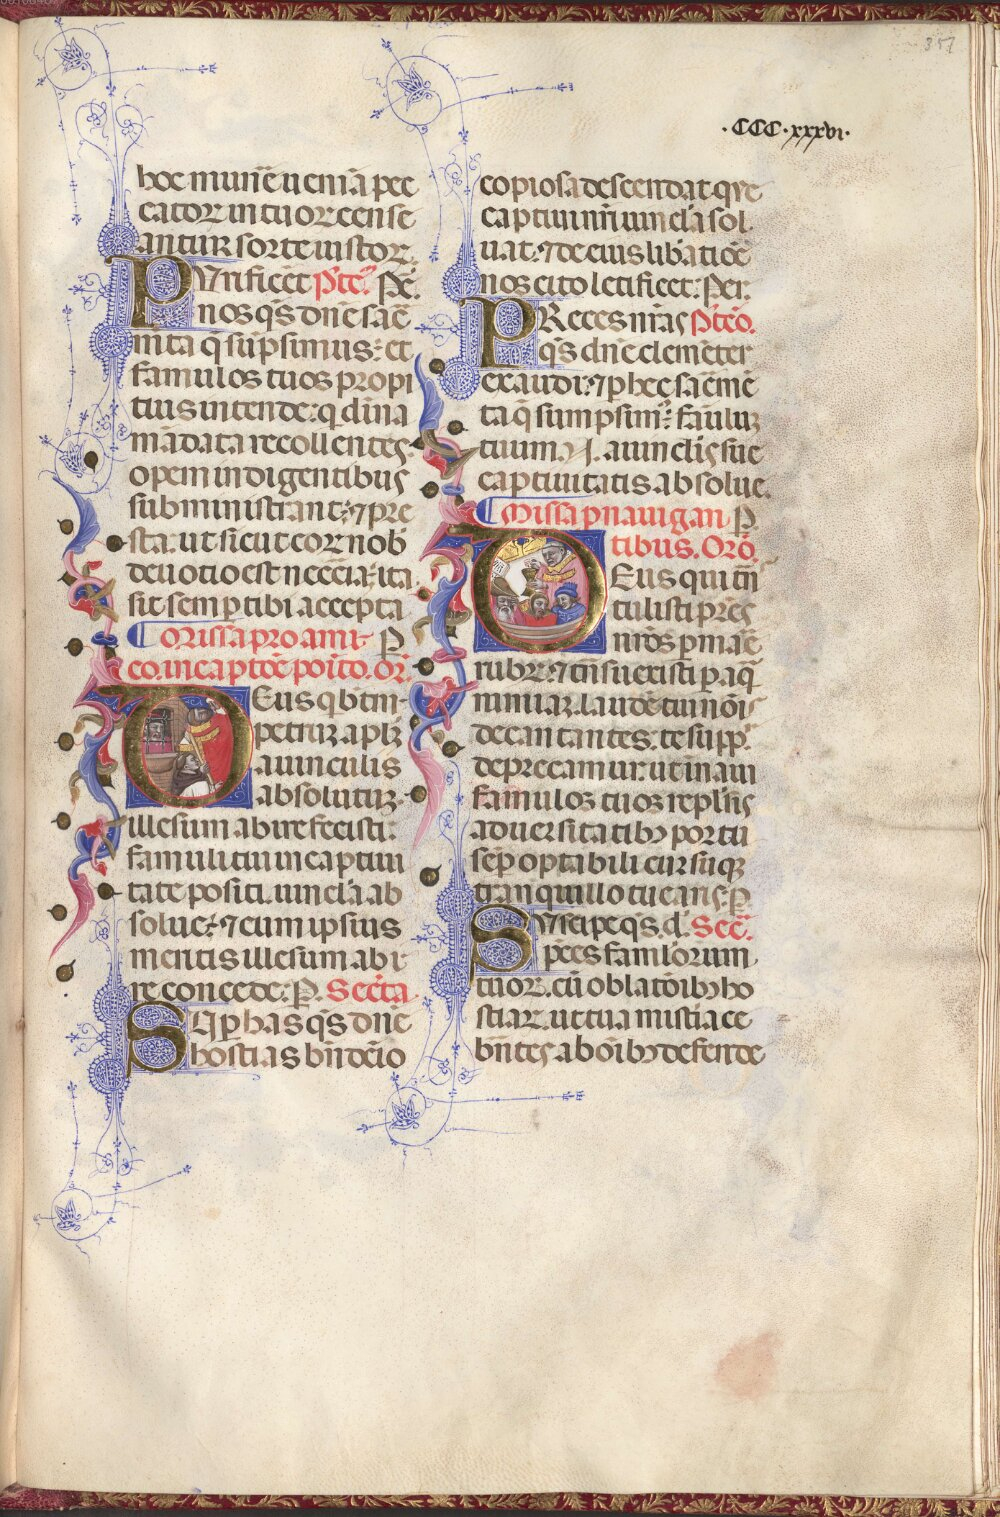 357
·CCC·xxxvi·
hoc mun̄e ueniā pec
catoꝝ in tuoꝝ cense
antur sorte iustoꝝ.
PUrificēt Pꝰtcō. Pc̄.
nos qs̄ dn̄e sac̄
mta q̄ sūpsimus: et
famulos tuos propi
tius intende: q̄ diuīa
mādata recollentes
opem indigentibus
subministrant: ⁊ pre
sta. ut sicut eoꝝ nob̄
deuotio est nec̄cīa: ita
sit semꝑ tibi accepta
¶ Missa pro ami P̄
co. in captōe poīto. Or̄.
DEus q̄ btm̄
petruꝫ apl̄ꝫ
a uinculis
absolutuꝫ
illesum abire fecisti:
famuli tui in captiui
tate positi. uincl̄a ab
solue: ⁊ eum ipsius
meritis illesum abi
re concede: P̄. Secr̄ta
SUꝑ has qs̄ dn̄e
hostias bn̄dc̄io
copiosa descendat. que
captiui nr̄i uincl̄a sol
uat. ⁊ de eius lib̄atiōe
nos cito letificet: Per.
PReces nr̄as Pꝰtcō.
qs̄ dn̄e clemēter
exaudi: ⁊ ꝑ hec sac̄me
ta q̄ sumpsimꝰ: famluꝫ
tuum .N. a uinclis sue
captiuitatis absolue.
¶ Missa ꝓ nauigan P̄
tibus. Orō.
DEus qui tn̄s
tulisti pr̄es
nr̄os ꝑ mare
rubꝝ. ⁊ tn̄suexisti ꝑ aq̄
nimiaꝫ. laudē tui noīs
decantantes. te supp̄.
deprecamur. ut in naui
famulos tuos repl̄sis
aduersitatibꝫ portu
semꝑ optabili cursuqꝫ
tranquillo tuearis: P̄.
SUscipe qs̄. d. Sec̄.
p̄ces famlorum
tuoꝝ. cū oblatōibꝫ ho
stiaꝝ. ut tua mistia ce
bn̄tes ab oībꝫ defende